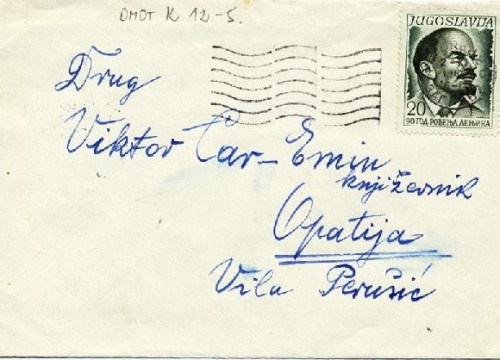 OMOT K 12-5.
JUGOSLAVIJA
20
90 ГОД. РОЂЕЊА ЛЕЊИНА
Drug
Viktor Car-Emin
književnik
Opatija
Vila Perušić